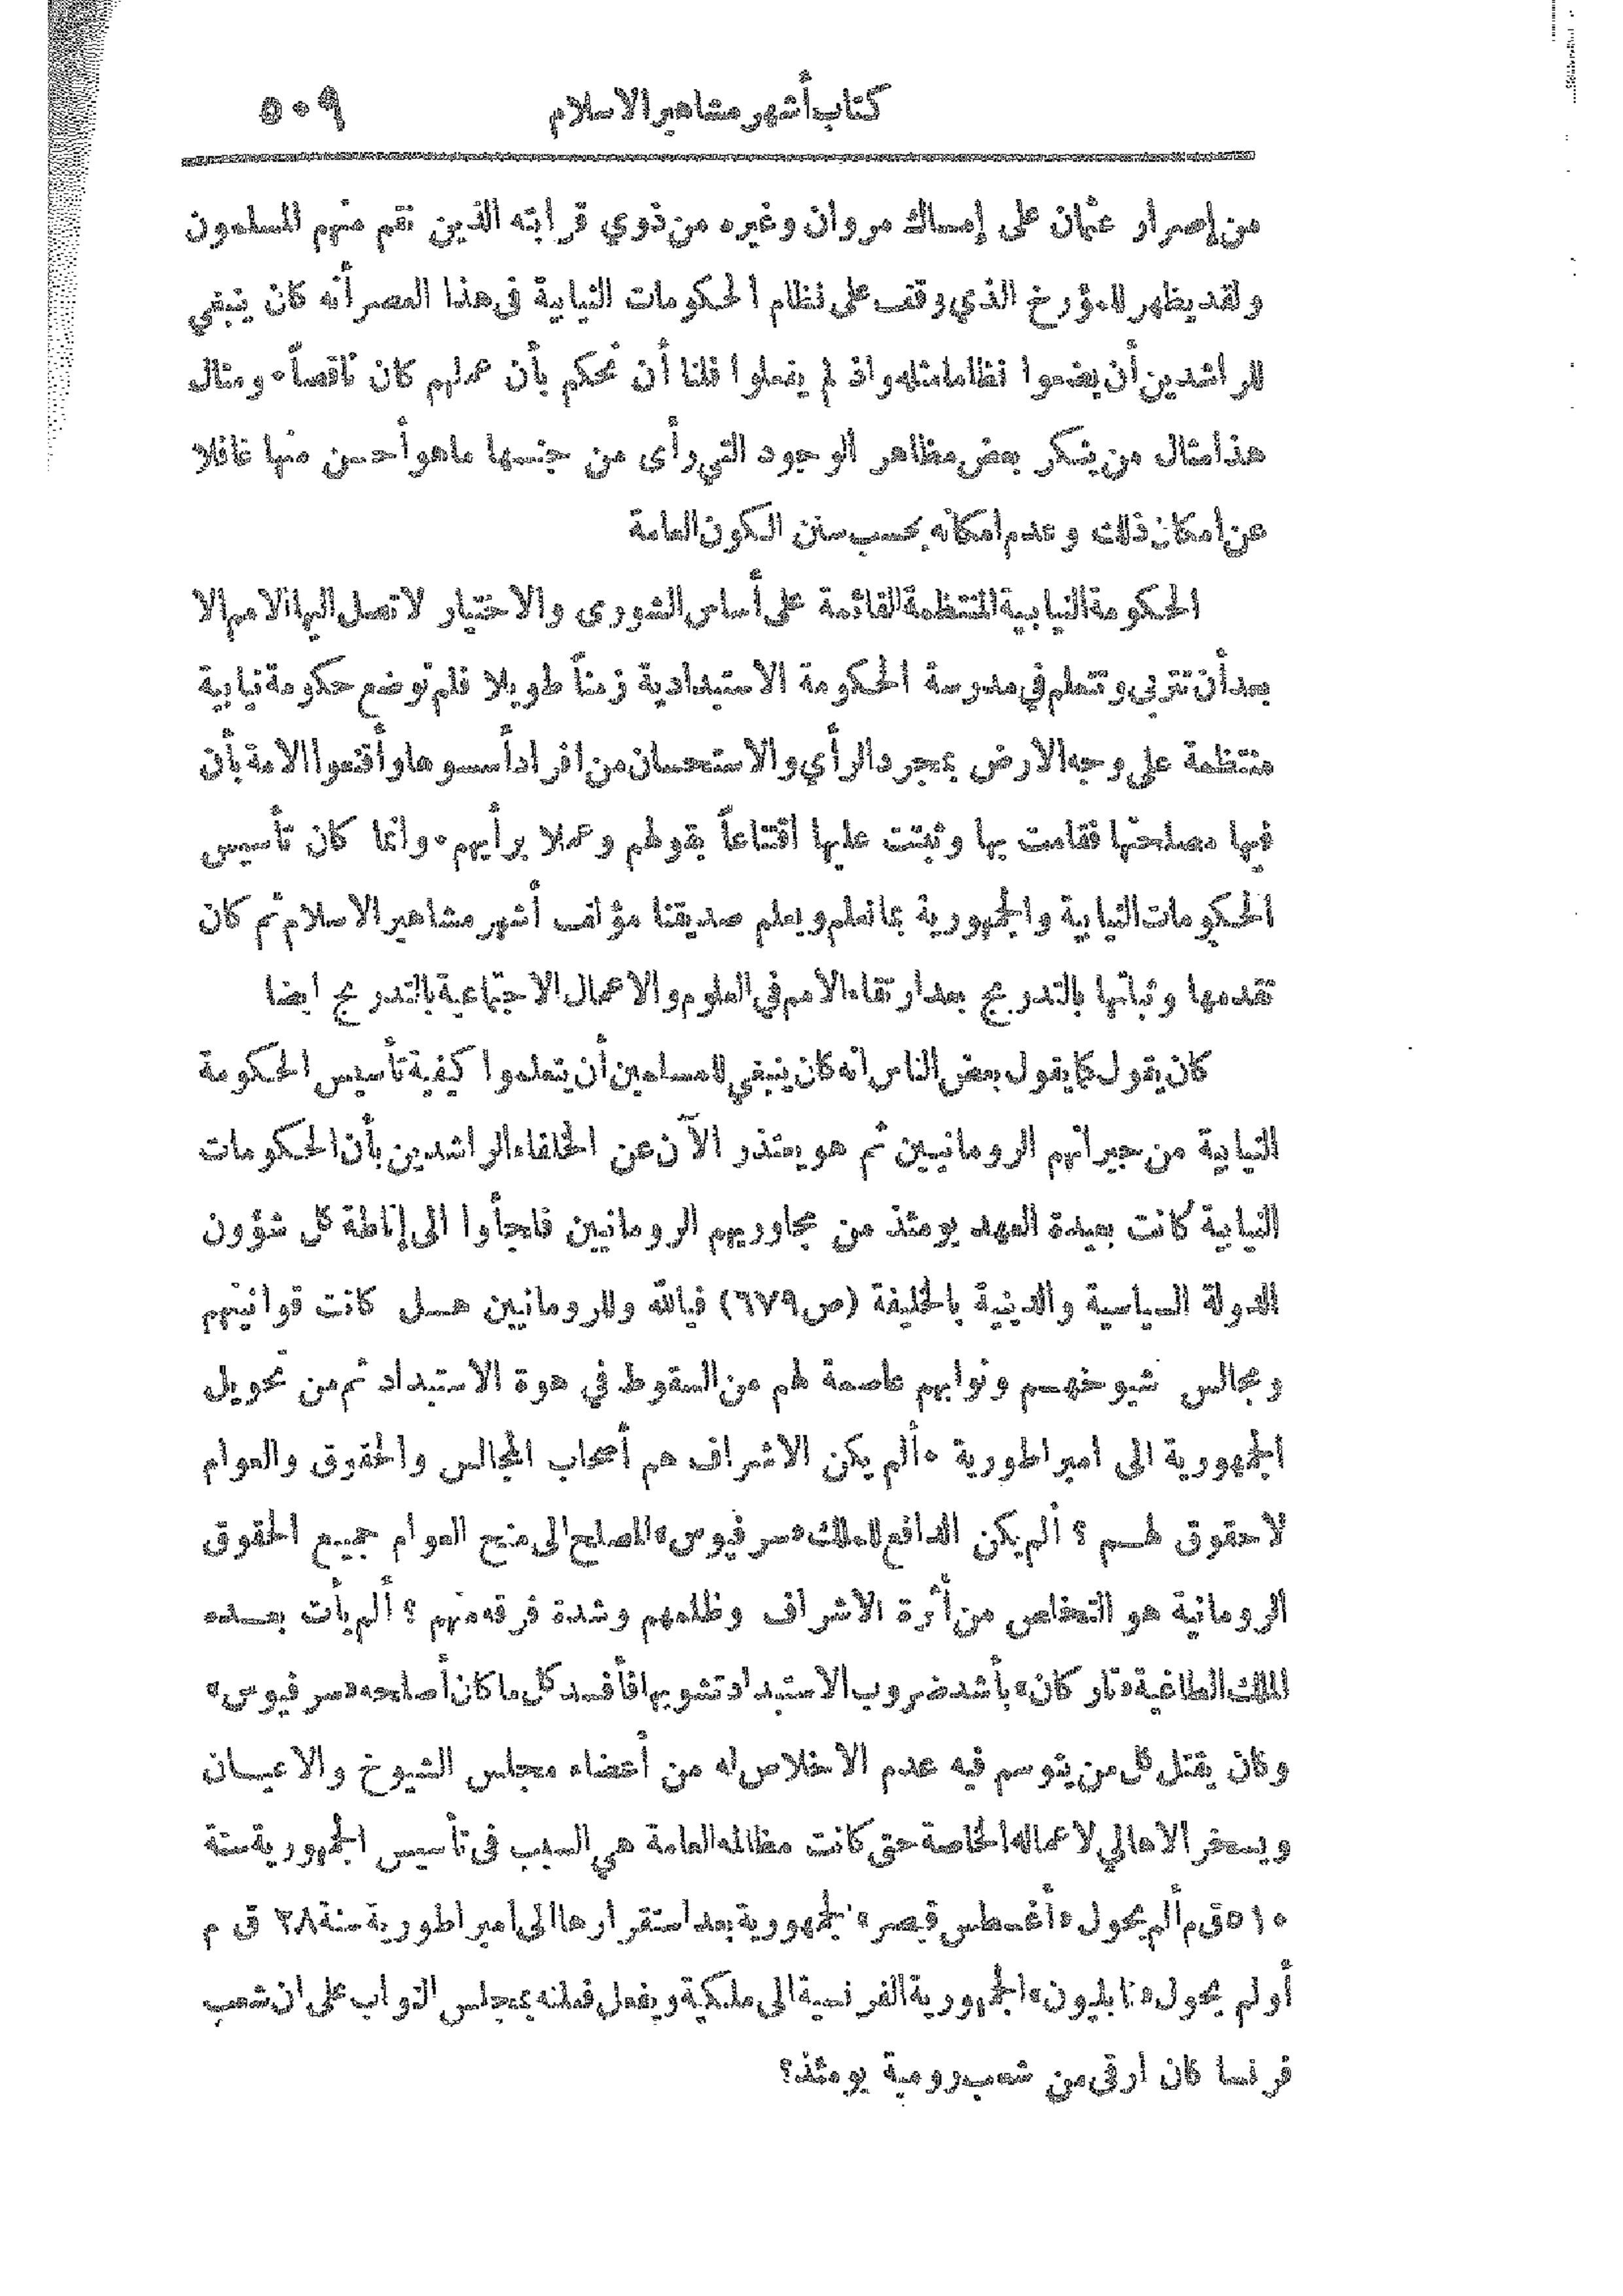 كتاب أشهر مشاهير الاسلام ٥٠٩
من إصرار عثمان على إمساك مروان وغيره من ذوي قرابته الذين نقم منهم المسلمون
ولقد يظهر للمؤرخ الذي وقف على نظام الحكومات النيابية في هذا العصر أنه كان ينبغي
للراشدين أن يضعوا نظاما مثله واذ لم يفعلوا فلنا أن نحكم بأن عملهم كان ناقصاً . ومثال
هذا مثال من ينكر بعض مظاهر الوجود التي رأى من جنسها ما هو أحسن منها غافلا
عن امكان ذلك وعدم امكانه بحسب سنن الكون العامة
الحكومة النيابية المنتظمة القائمة على أساس الشورى والاختيار لا تصل اليها الامم إلا
بعد أن تتربى وتتعلم في مدرسة الحكومة الاستبدادية زمناً طويلا فلم توضع حكومة نيابية
منتظمة على وجه الارض بمجرد الرأي والاستحسان من افراد أسسوها وأقنعوا الامة بأن
فيها مصلحتها فقامت بها وثبتت عليها اقتناعاً بقولهم وعملا برأيهم . وانما كان تأسيس
الحكومات النيابية والجمهورية بما نعلم ويعلم صديقنا مؤلف أشهر مشاهير الاسلام ثم كان
تقدمها وثباتها بالتدريج بعد ارتقاء الامم في العلوم والاعمال الاجتماعية بالتدريج ايضا
كان يقول كما يقول بعض الناس انه كان ينبغي للمسلمين أن يتعلموا كيفية تأسيس الحكومة
النيابية من جيرانهم الرومانيين ثم هو يعتذر الآن عن الخلفاء الراشدين بأن الحكومات
النيابية كانت بعيدة العهد يومئذ من مجاوريهم الرومانيين فلجأوا الى إناطة كل شؤون
الدولة السياسية والدينية بالخليفة (ص ٦٧٩) فيالله وللرومانيين هل كانت قوانينهم
ومجالس شيوخهم ونوابهم عاصمة لهم من السقوط في هوة الاستبداد ثم من تحويل
الجمهورية الى امبراطورية . ألم يكن الاشراف هم أصحاب المجالس والحقوق والعوام
لا حقوق لهم ؟ ألم يكن الدافع للملك «سرفيوس» المصلح الى منح العوام جميع الحقوق
الرومانية هو التخلص من أثرة الاشراف وظلمهم وشدة فرقه منهم ؟ ألم يأت بعده
الملك الطاغية «تاركان» بأشد ضروب الاستبداد تشويها فأفسد كل ما كان أصلحه «سرفيوس»
وكان يقتل كل من يتوسم فيه عدم الاخلاص له من أعضاء مجلس الشيوخ والاعيان
ويسخر الاهالي لاعماله الخاصة حتى كانت مظالمه العامة هي السبب في تأسيس الجمهورية سنة
٥١٠ ق م ألم يحول «أغسطس قيصر» الجمهورية بعد استقرارها الى امبراطورية سنة ٢٨ ق م
أولم يحول «نابليون» الجمهورية الفرنسية الى ملكية ويفعل فعلته بمجلس النواب على ان شعب
فرنسا كان ارقى من شعب رومية يومئذ؟